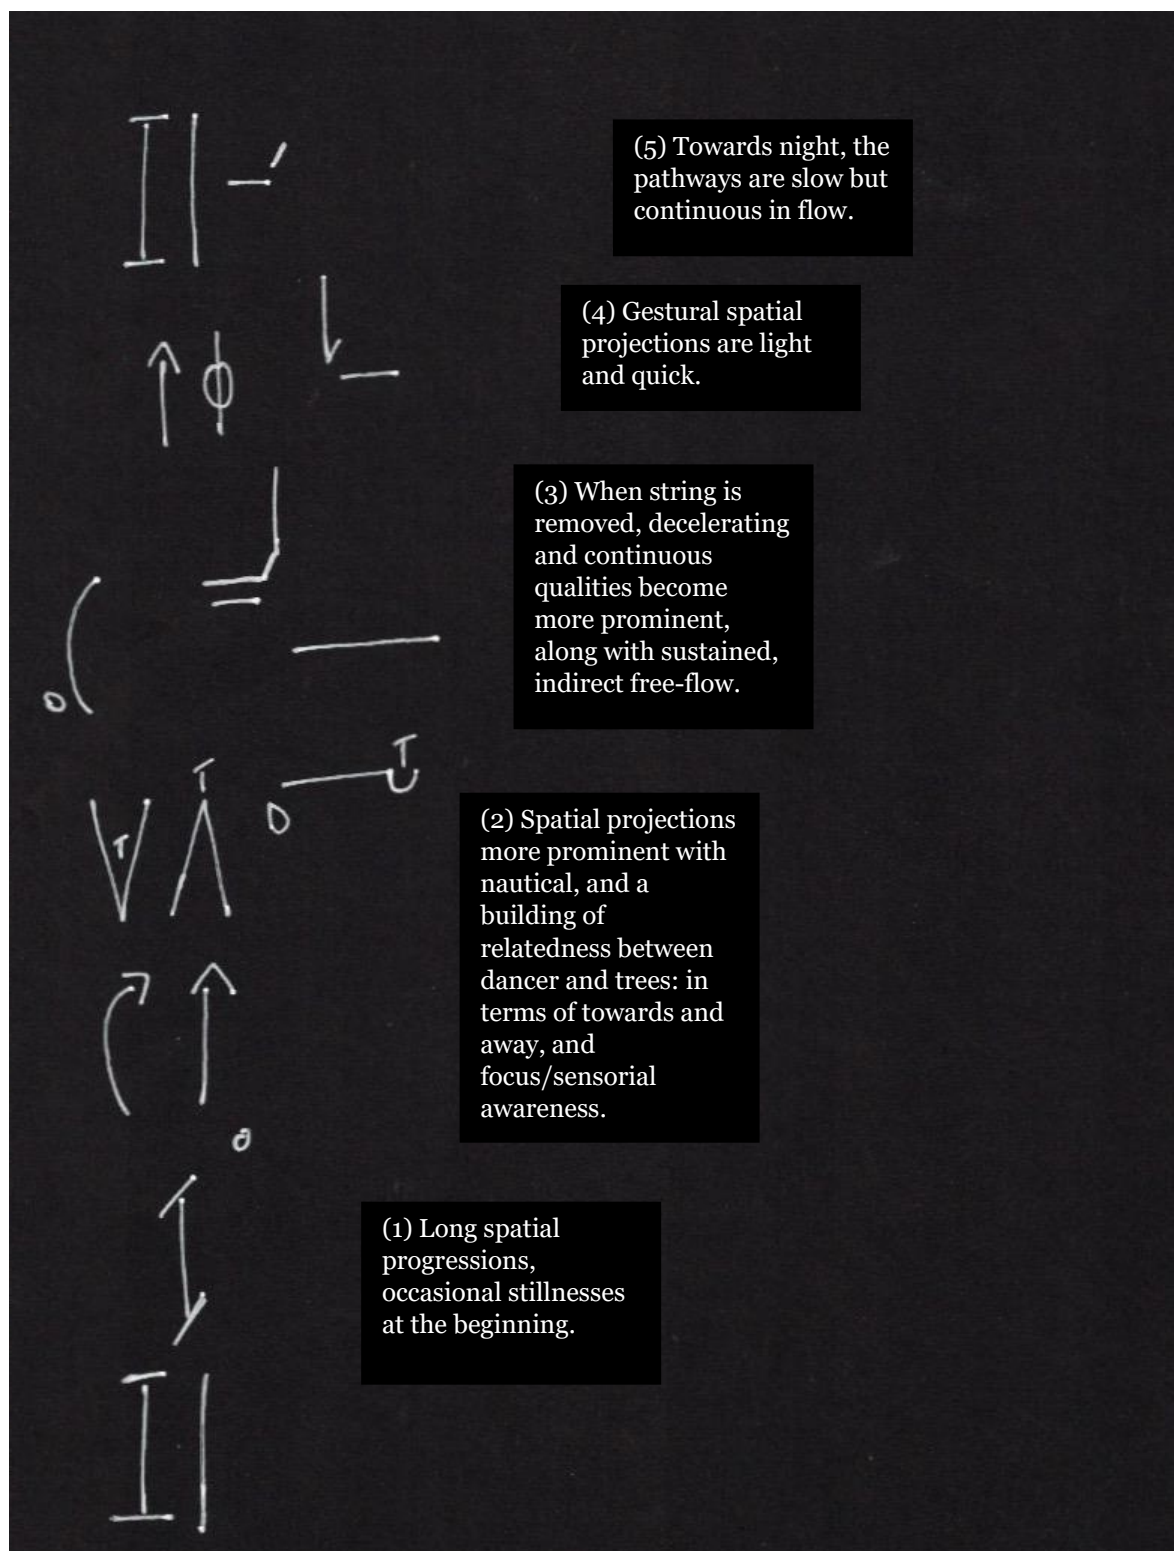 (5) Towards night, the
pathways are slow but
continuous in flow.
(4) Gestural spatial
projections are light
and quick.
(3) When string is
removed, decelerating
and continuous
qualities become
more prominent,
along with sustained,
indirect free-flow.
T
T
T
(2) Spatial projections
more prominent with
nautical, and a
building of
relatedness between
dancer and trees: in
terms of towards and
away, and
focus/sensorial
awareness.
(1) Long spatial
progressions,
occasional stillnesses
at the beginning.